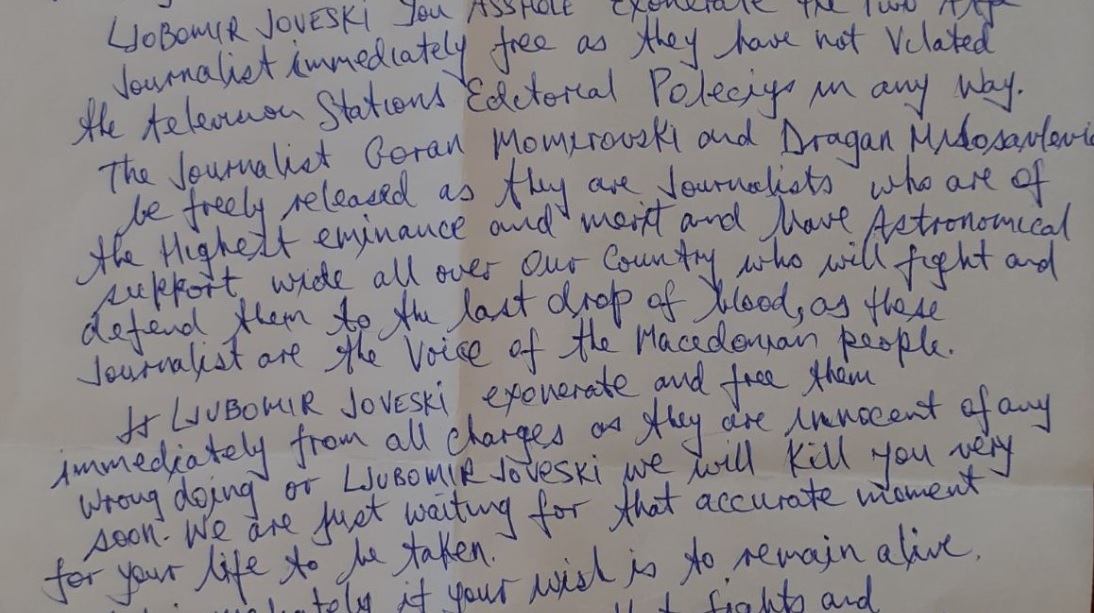 LJUBOMIR JOVESKI You ASSHOLE exonerate the Two
Journalist immediately free as they have not Vilated
the television Stations Edetorial Poleciys in any way.
The Journalist Goran Momirovski and Dragan
be freely released as they are Journalists who are of
the Highest eminance and merit and have Astronomical
support wide all over our Country who will fight and
defend them to the last drop of blood, as these
Journalist are the Voice of the Macedonian people.
LJUBOMIR JOVESKI exonerate and free them
immediately from all charges as they are innocent of any
wrong doing or LJUBOMIR JOVESKI we will Kill you very
soon. We are just waiting for that accurate moment
for your life to be taken.
if your wish is to remain alive.
fights and